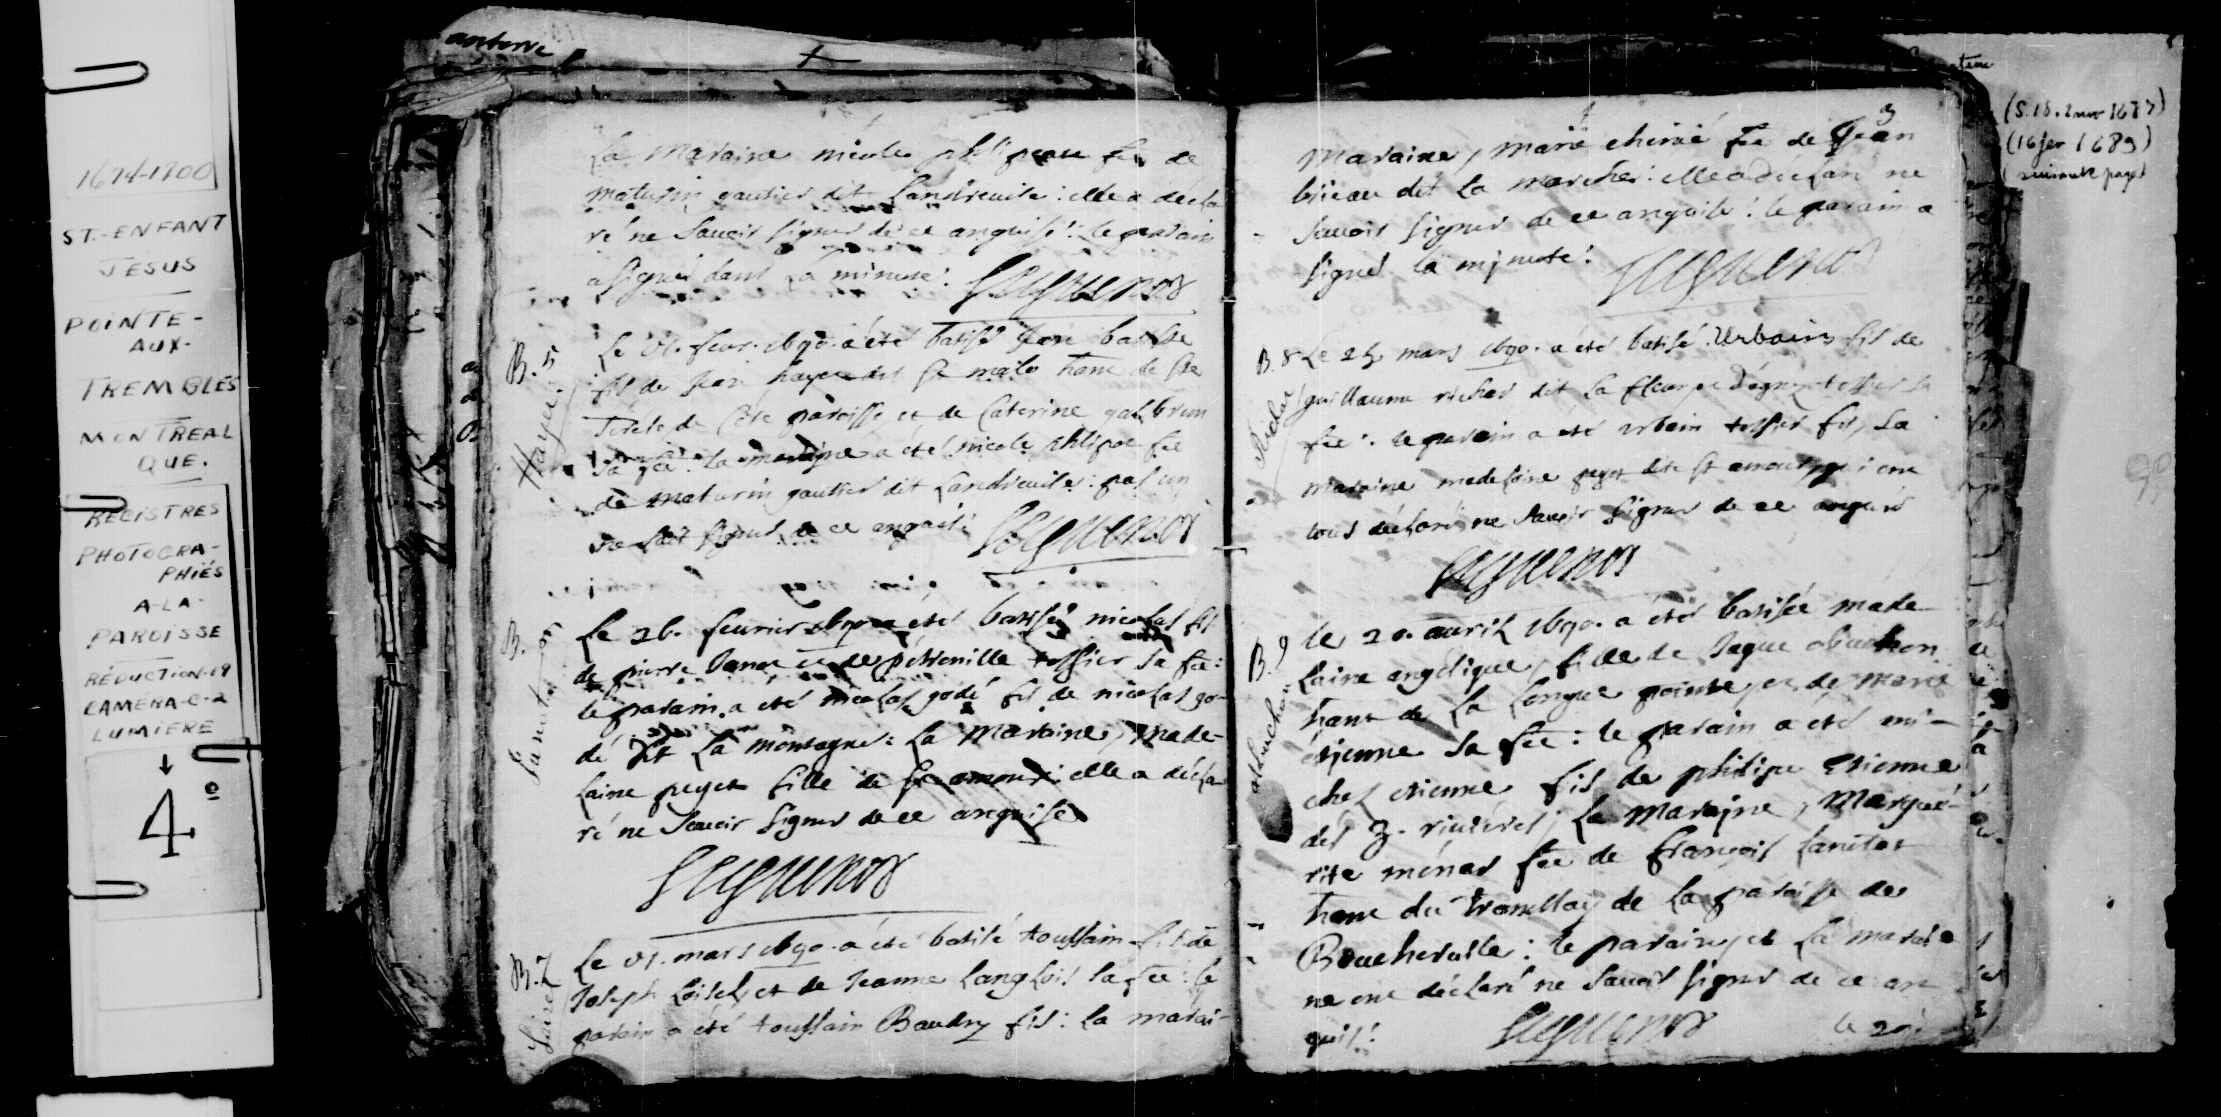 1674-1700
ST.-ENFANT
JESUS
POINTE-
AUX-
TREMBLES
MONTREAL
QUE.
REGISTRES
PHOTOGRA-
PHIÉS
A-LA-
PAROISSE
RÉDUCTION-19
CAMÉRA-C-2
LUMIERE
4º
La maraine nicole philipeau fẽ de
maturin gautier dit Landreuile: elle a decla
ré ne sauoir signer de ce anquise: le parain
a signé dans la minute: Seguenot
B. 5
Hayet
Le 01. feur. 1690. a été batisé Jean batiste
fils de Jean hayet dit St malo hanc de Ste
Térèse de cete paroisse et de Caterine galbrun
sa fẽ: la maraine a été nicole philipot fẽ
de maturin gautier dit Landreuile: pas un
ne sait signer de ce anquis: Seguenot
B.
Janot
Le 26. feurier 1690 a été batisé nicolas fils
de pierre Janot et de pétronille tessier sa fẽ:
le parain a été nicolas godé fils de nicolas go-
dé dit La montagne: La maraine, made-
laine peyet fille de St amour: elle a décla
ré ne sauoir signer de ce anquise
Seguenot
B. 7
Loisel
Le 01. mars 1690. a été batisé toussain fils de
Joseph Loisel, et de Jeanne Langlois sa fẽ: le
parain a été toussain Baudry fils: la marai-
3
maraine, marie cheniẽ fẽ de Jean
brieau dit La marche: elle a déclaré ne
sauoir signer de ce anquise: le parain a
signé la minute: Seguenot
B. 8
Richar
Le 25 mars 1690. a été batisé Urbain fils de
guillaume richar dit La fleur et d'agnes tessier sa
fẽ: le parain a été urbain tessier fils, la
maraine madelaine peyet dite St amour, qui ont
tous déclaré ne sauoir signer de ce anquis
Seguenot
B. 9
aubuchon
Le 20. auril 1690. a été batisée made-
laine angélique, fille de Jaque obuchon
hanc de La Longue pointe, et de Marie
étienne sa fẽ: le parain a été mi-
chel étienne fils de philipe Étienne
des 3. riuières; la maraine, Margué-
rite ménar fẽ de françois Lanctot
hanc du tremblay de La paroisse de
Boucheruille: le parain, et La marai
ne ont déclaré ne sauoir signer de ce an
quis: Seguenot
le 29:
(16 fev 1689)